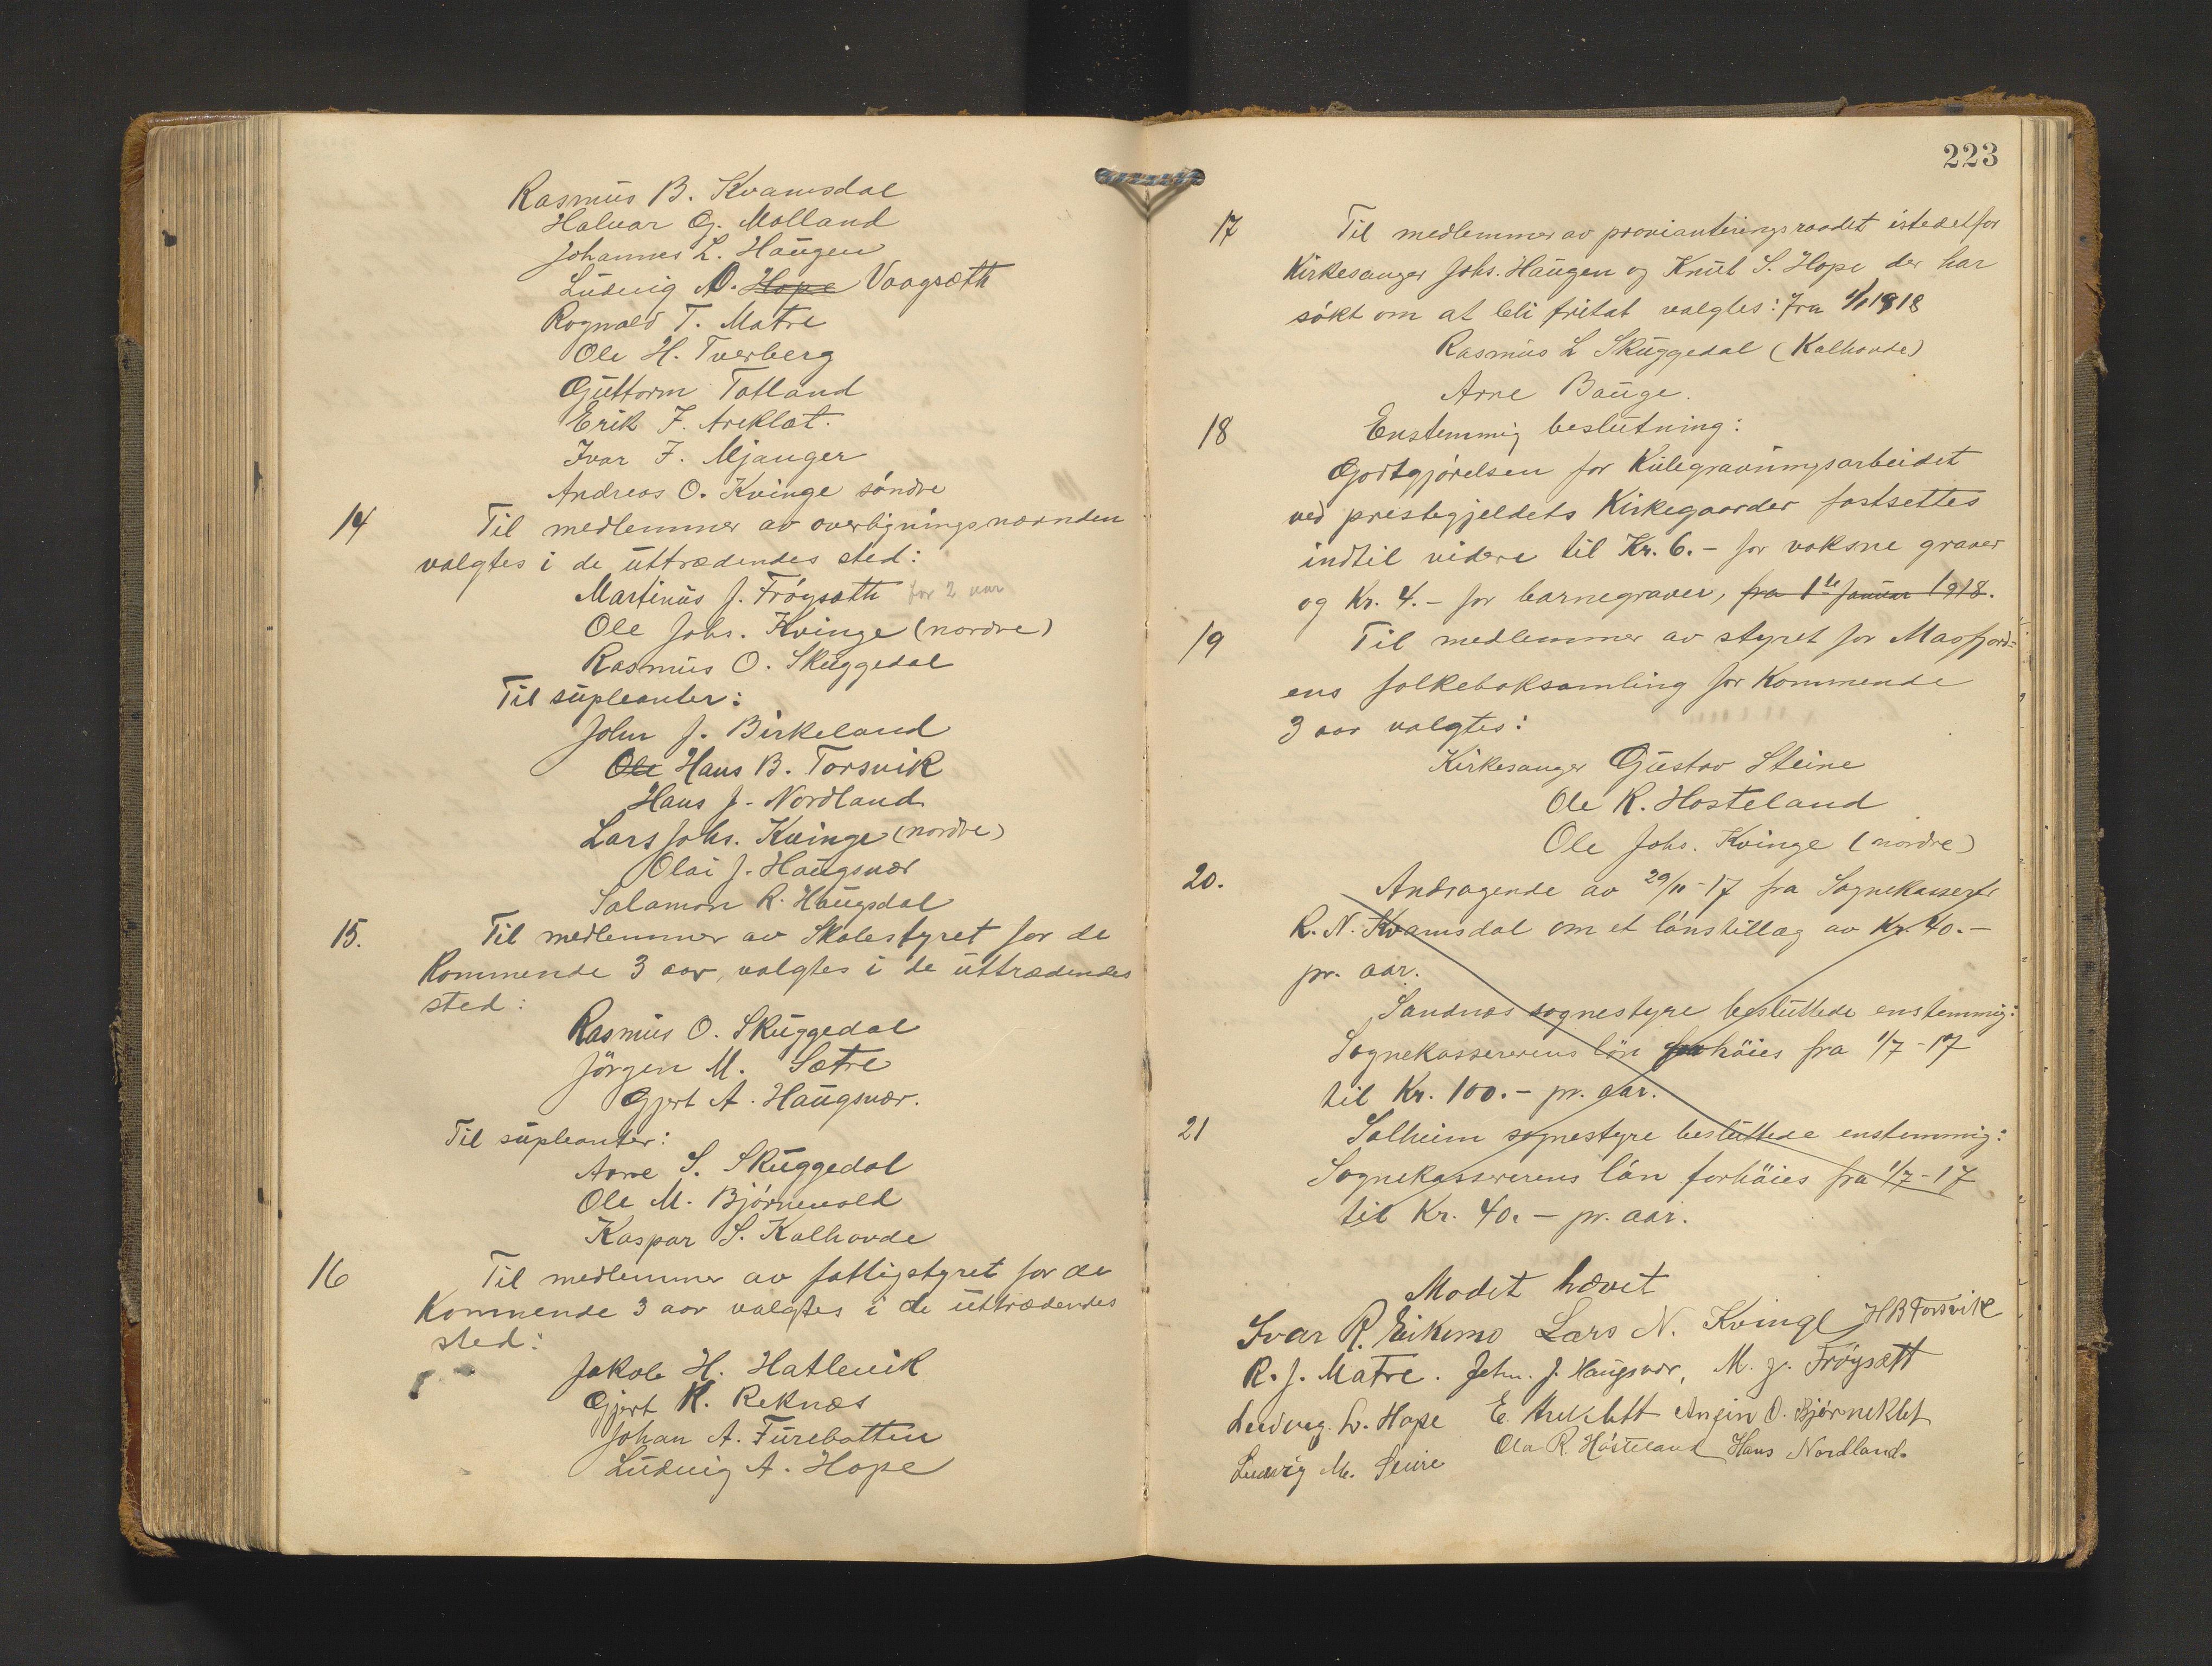 Rasmus B. Kvamsdal
Halvar Gj. Molland
Johannes L. Haugen
Ludvig A. Hope Vaagsæth
Rognald T. Matre
Ole H. Tverberg
Guttorm Totland
Erik F. Areklat.
Ivar F. Mjanger
Andreas O. Kvinge söndre
14 Til medlemmer av overligningsnævnden
valgtes i de uttrædendes sted:
Martinus J. Fröysæth for 2 aar
Ole Johs. Kvinge (nordre)
Rasmus O. Skuggedal
Til supleanter:
John J. Birkeland
Ole Hans B. Torsvik
Hans J. Nordland
Lars Johs. Kvinge (nordre)
Olai J. Haugsvær
Salamon R. Haugsdal
15. Til medlemmer av Skolestyret for de
kommende 3 aar, valgtes i de uttrædendes
sted:
Rasmus O. Skuggedal
Jörgen M. Sætre
Gjert A. Haugsvær.
Til supleanter:
Arne S. Skuggedal
Ole M. Björnevold
Kaspar S. Kalhovde
16 Til medlemmer av fattigstyret for de
kommende 3 aar valgtes i de uttrædendes
sted:
Jakob H. Hatlevik
Gjert K. Reknæs
Johan A. Furebotten
Ludvig A. Hope
223
17 Til medlemmer av provianteringsraadet istedetfor
Kirkesanger Johs. Haugen og Knut S. Hope der har
sökt om at bli fritat valgtes: fra 1/1 1918
Rasmus L Skuggedal (Kalhovde)
Arne Bauge.
18 Enstemmig beslutning:
Godtgjörelsen for Kulegravningsarbeidet
ved prestegjeldets Kirkegaarder fastsettes
indtil videre til Kr. 6.- for voksne graver
og Kr. 4.- for barnegraver, fra 1ste Januar 1918.
19 Til medlemmer av styret for Masfjord-
ens folkeboksamling for kommende
3 aar valgtes:
Kirkesanger Gustav Steine
Ole R. Hosteland
Ole Johs. Kvinge (nordre)
20. Andragende av 29/11-17 fra Sognekasserer
R. N. Kvamsdal om et lönstillæg av Kr. 40.-
pr. aar.
Sandnæs sognestyre besluttede enstemmig:
Sognekassererens lön forhöies fra 1/7-17
til Kr. 100.- pr. aar.
21 Solheim sognestyre besluttede enstemmig:
Sognekassererens lön forhöies fra 1/7-17
til Kr. 40.- pr. aar.
Mödet hævet
Ivar R. Eikemo Lars N. Kvinge H B Torsvik
R. J. Matre. John. J. Haugsvær, M. J. Fröysætt
Ludvig. L. Hope E. Areklett Ansin O. Bjørneklet
Ludvig M. Ole R. Hösteland Hans Nordland.